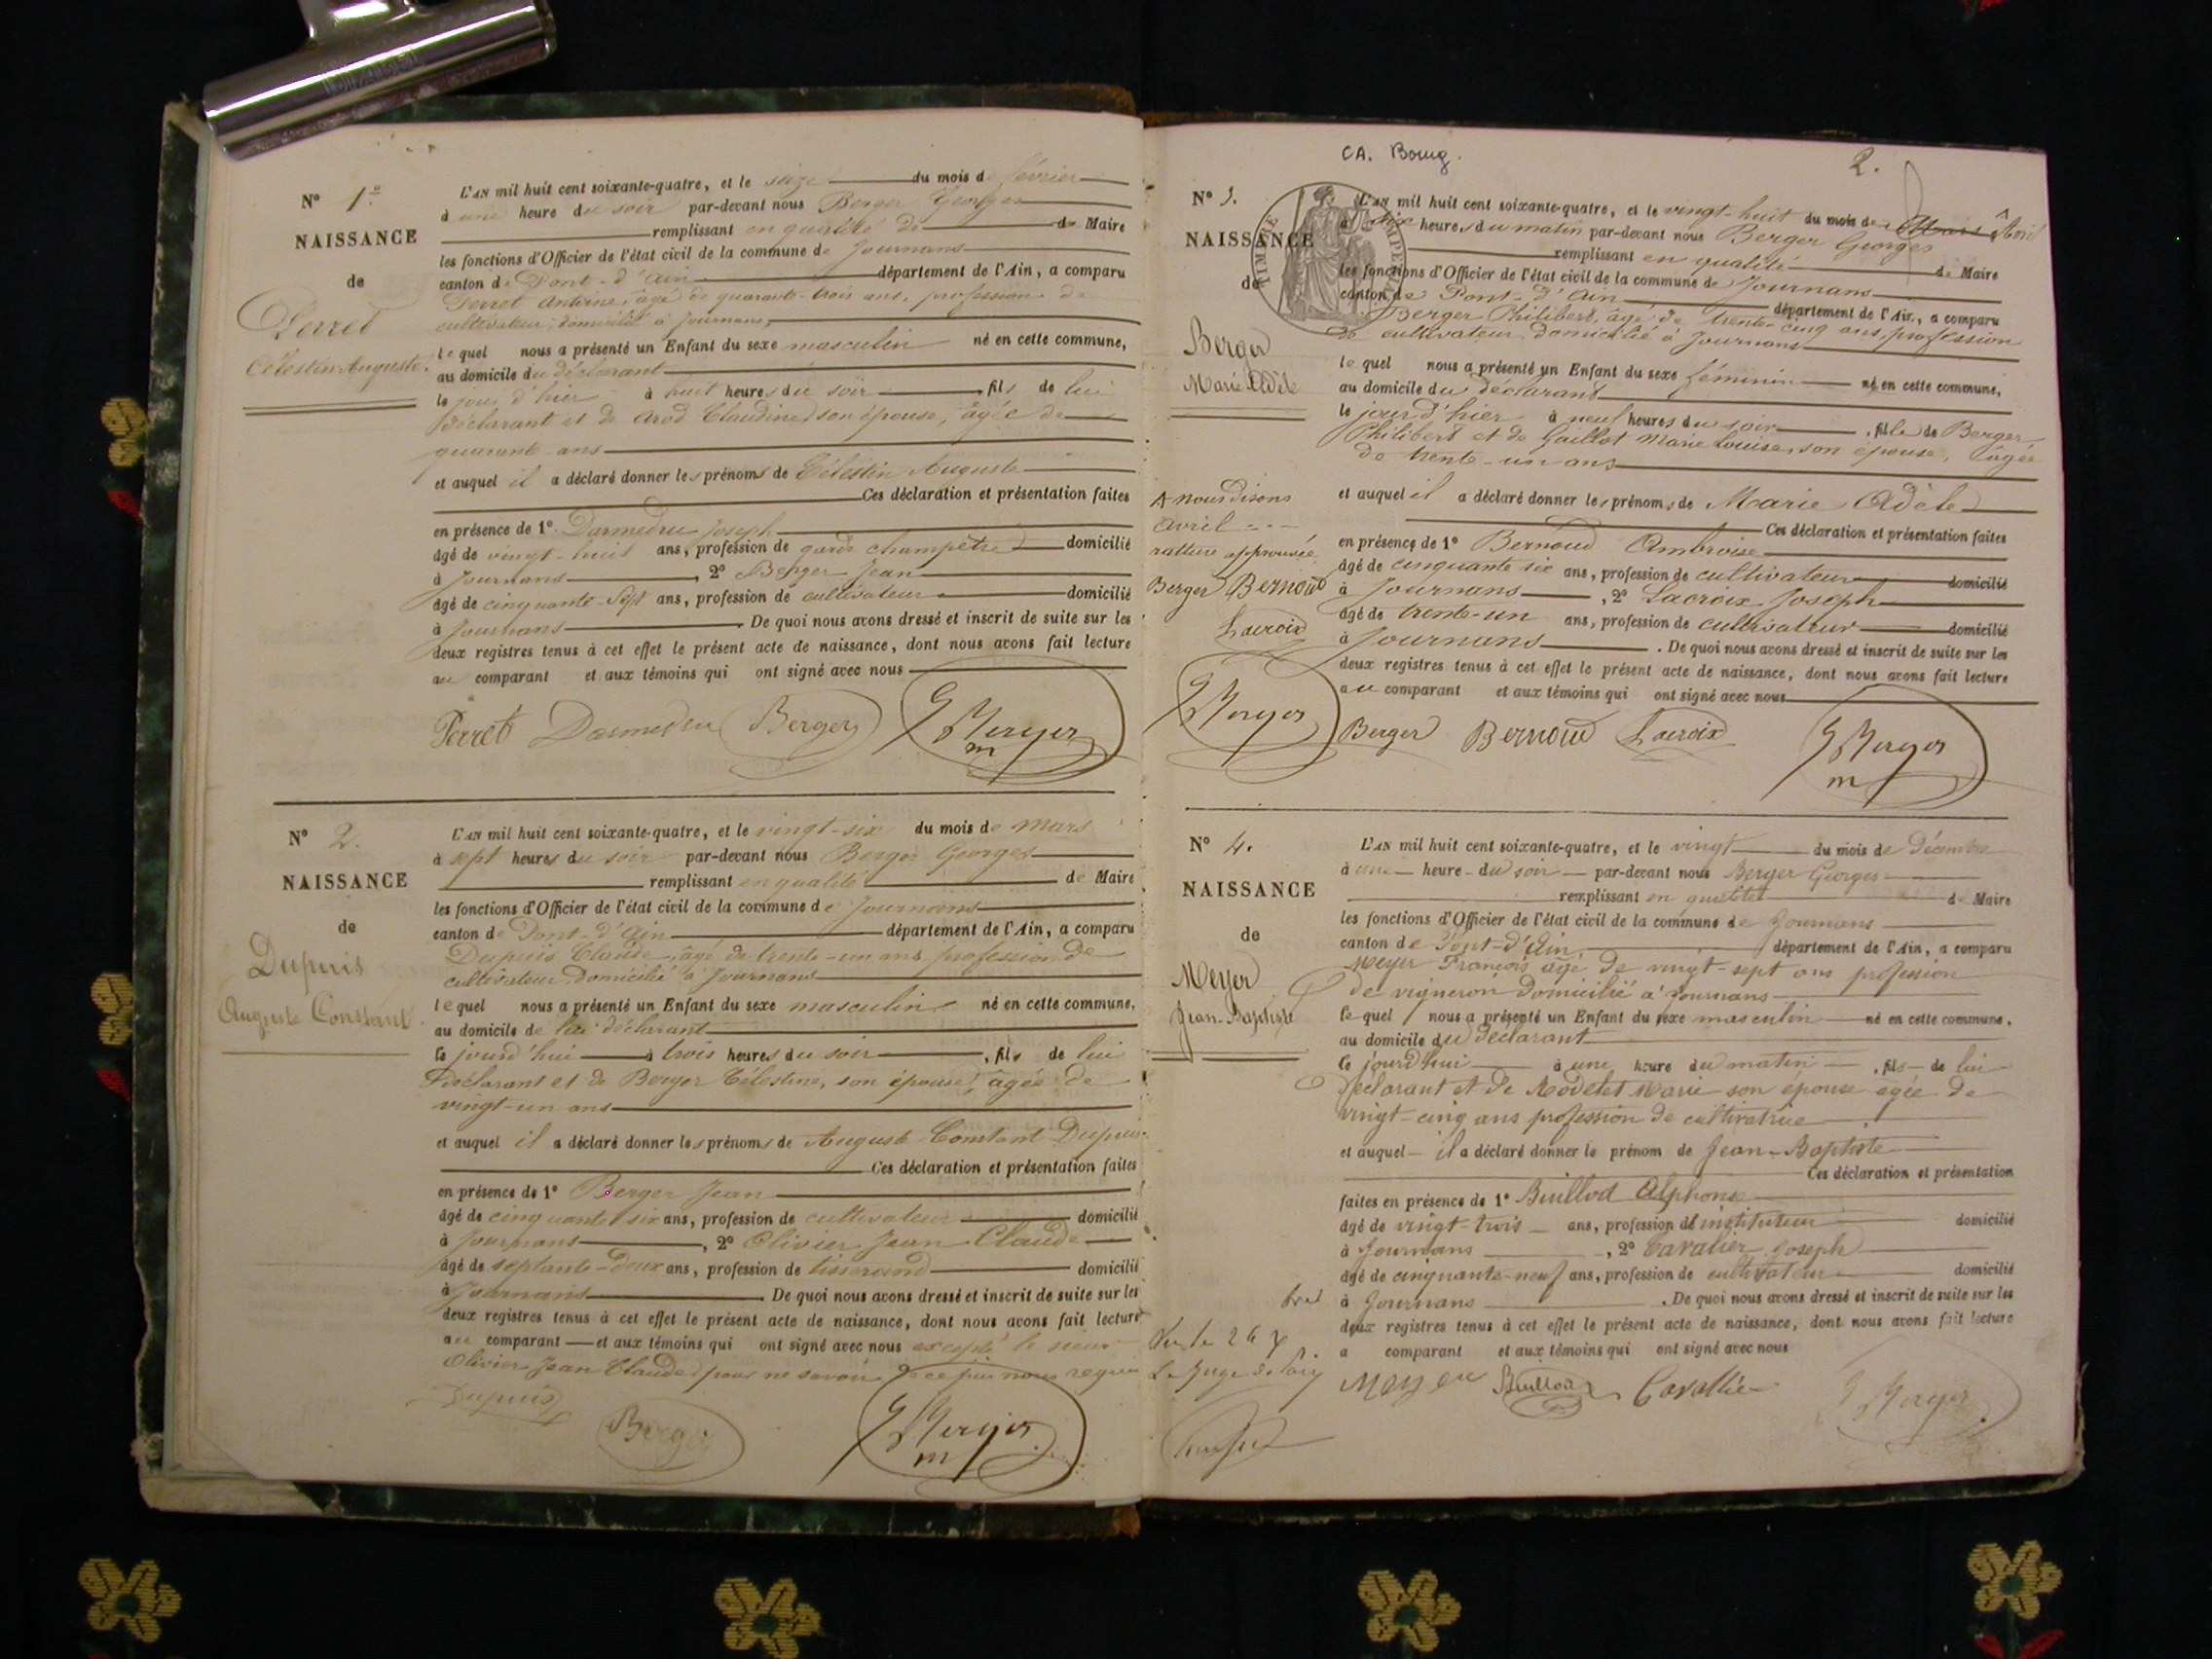 N° 1.
NAISSANCE
de
Perret
Célestin Auguste.
L'AN mil huit cent soixante-quatre, et le seize du mois de février
à une heure du soir par-devant nous Berger Georges
remplissant en qualité de de Maire
les fonctions d'Officier de l'état civil de la commune de Journans
canton de Pont-d'Ain département de l'Ain, a comparu
Perret Antoine, âgé de quarante-trois ans, profession de
cultivateur, domicilié à Journans,
le quel nous a présenté un Enfant du sexe masculin né en cette commune,
au domicile du déclarant
le jour d'hier à huit heures du soir fils de lui
Déclarant et de Arod Claudine son épouse, âgée de
quarante ans
et auquel il a déclaré donner les prénoms de Célestin Auguste
Ces déclaration et présentation faites
en présence de 1° Darmedru Joseph
âgé de vingt-huit ans, profession de garde champêtre domicilié
à Journans, 2° Berger Jean
âgé de cinquante-sept ans, profession de cultivateur domicilié
à Journans. De quoi nous avons dressé et inscrit de suite sur les
deux registres tenus à cet effet le présent acte de naissance, dont nous avons fait lecture
au comparant et aux témoins qui ont signé avec nous
Perret Darmedru Berger G Berger
m
N° 2.
NAISSANCE
de
Dupuis
Auguste Constant
L'AN mil huit cent soixante-quatre, et le vingt-six du mois de mars
à sept heures du soir par-devant nous Berger Georges
remplissant en qualité de Maire
les fonctions d'Officier de l'état civil de la commune de Journans
canton de Pont-d'Ain département de l'Ain, a comparu
Dupuis Claude, âgé de trente-un ans profession de
cultivateur domicilié à Journans
le quel nous a présenté un Enfant du sexe masculin né en cette commune,
au domicile de lui déclarant
le jourd'hui à trois heures du soir, fils de lui
Déclarant et de Berger Célestine, son épouse, âgée de
vingt-un ans
et auquel il a déclaré donner les prénoms de Auguste Constant Dupuis
Ces déclaration et présentation faites
en présence de 1° Berger Jean
âgé de cinquante six ans, profession de cultivateur domicilié
à Journans, 2° Olivier Jean Claude
âgé de septante-deux ans, profession de tisserand domicilié
à Journans. De quoi nous avons dressé et inscrit de suite sur les
deux registres tenus à cet effet le présent acte de naissance, dont nous avons fait lecture
au comparant et aux témoins qui ont signé avec nous excepté le sieur
Olivier Jean Claude pour ne savoir de ce par nous requis
Dupuis Berger G Berger
m
CA. Bourg. 2.
N° 3.
NAISSANCE
de
Berger
Marie Adèle
TIMBRE IMPERIAL
L'AN mil huit cent soixante-quatre, et le vingt-huit du mois de Mars Avril
à dix heures du matin par-devant nous Berger Georges
remplissant en qualité de Maire
les fonctions d'Officier de l'état civil de la commune de Journans
canton de Pont-d'Ain département de l'Ain, a comparu
Berger Philibert, âgé de trente-cinq ans, profession
de cultivateur domicilié à Journans
le quel nous a présenté un Enfant du sexe féminin né en cette commune,
au domicile du déclarant
le jour d'hier à neuf heures du soir, fille de Berger
Philibert et de Guillot Marie Louise, son épouse, âgée
de trente-un ans
et auquel il a déclaré donner les prénoms de Marie Adèle
Ces déclaration et présentation faites
en présence de 1° Bernoud Ambroise
âgé de cinquante six ans, profession de cultivateur domicilié
à Journans, 2° Lacroix Joseph
âgé de trente-un ans, profession de cultivateur domicilié
à Journans. De quoi nous avons dressé et inscrit de suite sur les
deux registres tenus à cet effet le présent acte de naissance, dont nous avons fait lecture
au comparant et aux témoins qui ont signé avec nous
nous disons
avril
rature approuvée
Berger Bernoud
Lacroix
G Berger Berger Bernoud Lacroix G Berger
m
N° 4.
NAISSANCE
de
Meyer
Jean-Baptiste
L'AN mil huit cent soixante-quatre, et le vingt du mois de Décembre
à une heure du soir par-devant nous Berger Georges
remplissant en qualité de Maire
les fonctions d'Officier de l'état civil de la commune de Journans
canton de Pont-d'Ain département de l'Ain, a comparu
Meyer François âgé de vingt-sept ans profession
de vigneron domicilié à Journans
le quel nous a présenté un Enfant du sexe masculin né en cette commune,
au domicile du déclarant
le jourd'hui à une heure du matin, fils de lui
déclarant et de Rodetet Marie son épouse agée de
vingt-cinq ans profession de cultivatrice
et auquel il a déclaré donner le prénom de Jean-Baptiste
Ces déclaration et présentation
faites en présence de 1° Buillod Alphonse
âgé de vingt-trois ans, profession d'instituteur domicilié
à Journans, 2° Cavalier Joseph
âgé de cinquante-neuf ans, profession de cultivateur domicilié
à Journans. De quoi nous avons dressé et inscrit de suite sur les
deux registres tenus à cet effet le présent acte de naissance, dont nous avons fait lecture
a comparant et aux témoins qui ont signé avec nous
Le Juge de Paix
Meyer Buillod Cavallier G Berger